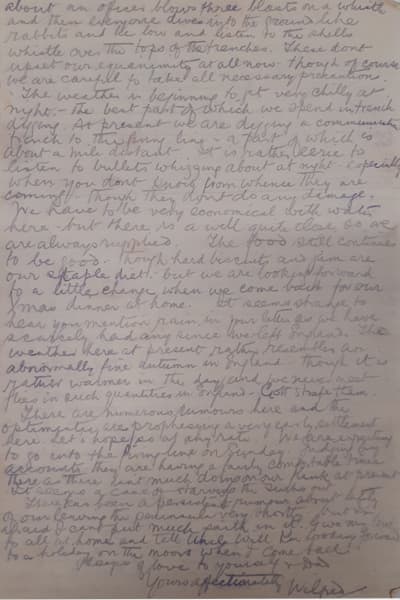 about an officer blows three blasts on a whistle
and then everyone dives into the ground like
rabbits and lie low and listen to the shells
whistle over the tops of the trenches. These dont
upset our equanimity at all now. though of course
we are careful to take all necessary precautions.
The weather is beginning to get very chilly at
night - the best part of which we spend in trench
digging. At present we are digging a communication
trench to the firing line - a part of which is
about a mile distant. It is rather eerie to
listen to bullets whizzing about at night - especially
when you dont know from whence they are
coming - though they dont do any damage.
We have to be very economical with water
here - but there is a well quite close so we
are always supplied. The food still continues
to be good - though hard biscuits and jam are
our staple diet. but we are looking forward
to a little change when we come back for our
Xmas dinner at home. It seems strange to
hear you mention rain in your letter as we have
scarcely had any since we left England. The
weather here at present rather resembles an
abnormally fine autumn in England - though it is
rather warmer in the day and we never meet
flies in such quantities in England - Gott strafe them.
There are numerous rumours here and the
optimists are prophesying a very early settlement
here. Let's hope so at any rate. We are expecting
to go into the firing line on Sunday. Judging by
accounts they are having a fairly comfortable time
there as there isnt much doing on our flank at present
It seems a case of starving the Turks out.
There has been a persistent rumour about lately
of our leaving the peninsular very shortly but I'm
afraid I cant put much faith in it. Give my love
to all at home and tell Uncle Will I'm looking forward
to a holiday on the moors when I come back.
Heaps of love to yourself & Dad
Yours affectionately
Wilfred